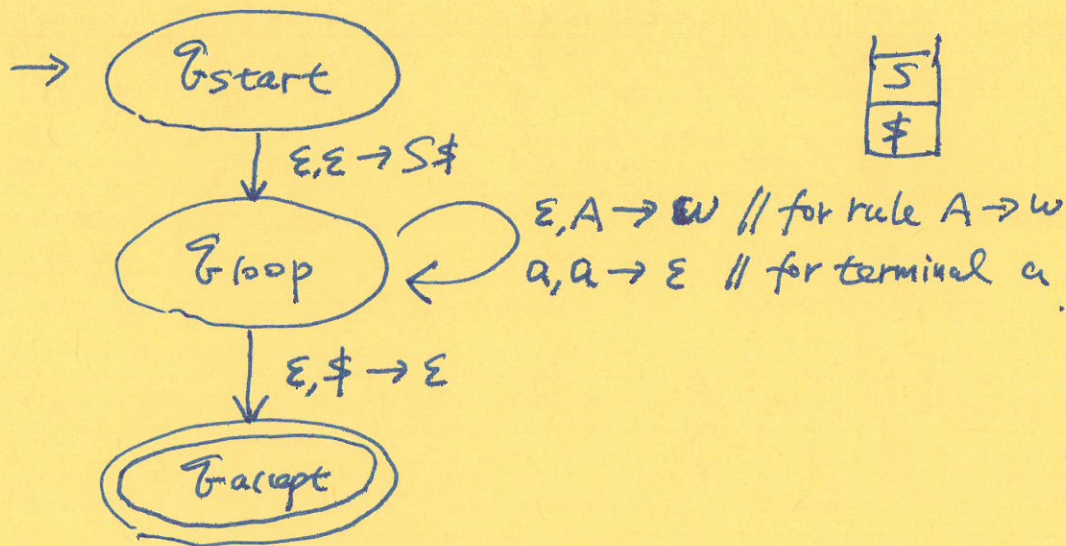 → qstart
S
$
ε,ε → S$
ε,A → w // for rule A → w
qloop
a,a → ε // for terminal a.
ε,$ → ε
qaccept